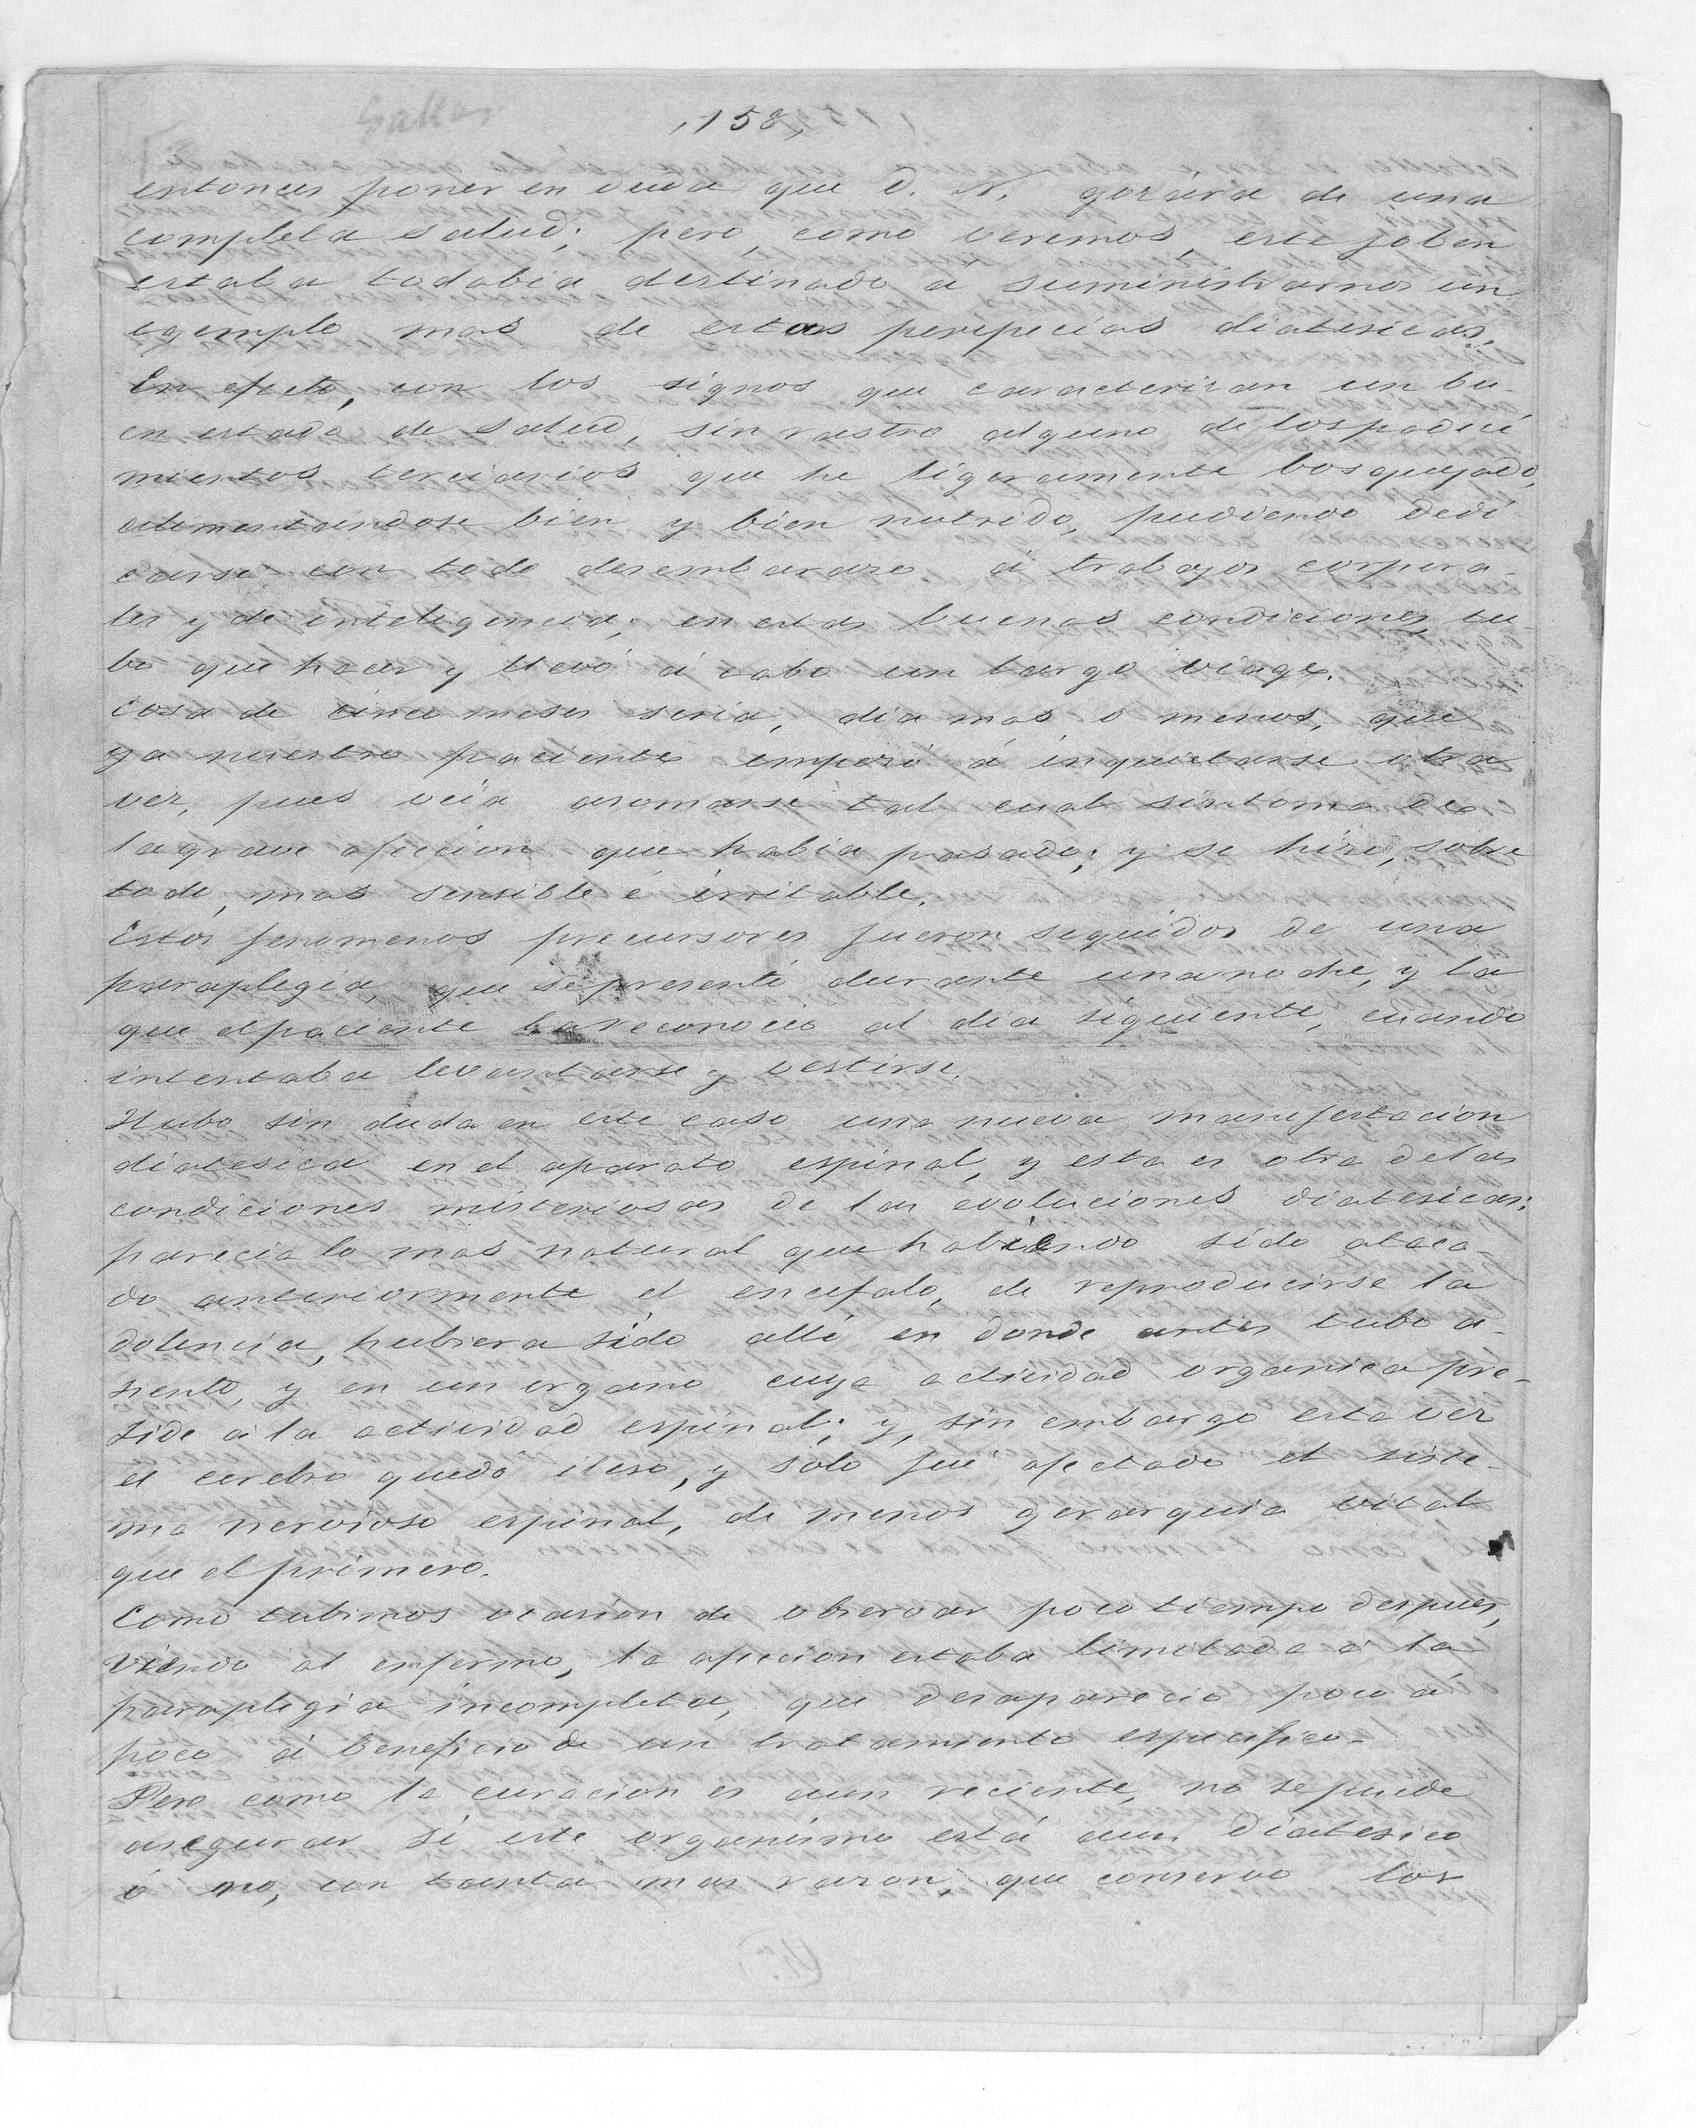 158,
entonces poner en duda que D. N. gozára de una
completa salud; pero, como veremos, este joben
estaba todabia destinado á suministrarnos un
egemplo mas de estas peripecias diatesicas.
En efecto, con los signos que caracterizan un bu-
en estado de salud, sin rastro alguno de los padeci
mientos terciarios que he ligeramente bosquejado,
alimentandose bien y bien nutrido, pudiendo dedi
carse con todo desembarazo á trabajos corpora-
les y de inteligencia; en estas buenas condiciones, tu-
bo que hacer y llevó á cabo un largo viage.
Cosa de cinco meses seria, dia mas o menos, que
ya nuestro paciente empezó á inquietarse otra
vez, pues veia asomarse tal cual sintoma de
la grave afeccion que habia pasado; y se hizo, sobre
todo, mas sensible é irritable.
Estos fenomenos precursores fueron seguidos de una
paraplegia, que se presentó durante una noche, y la
que el paciente la reconoció al dia siguiente, cuando
intentaba levantarse y vestirse.
Hubo sin duda en este caso una nueva manifestacion
diatesica en el aparato espinal, y esta es otra de las
condiciones misteriosas de las evoluciones diatesicas:
parecia lo mas natural que habiendo sido ataca-
do anteriormente el encefalo, de reproducirse la
dolencia, hubiera sido alli en donde antes tubo a-
siento, y en un organo cuya actividad organica pre-
side á la actividad espinal; y, sin embargo esta vez
el cerebro quedó ileso, y solo fué afectado el siste-
ma nervioso espinal, de menos gerarquia vital
que el primero.
Como tubimos ocasion de observar poco tiempo despues,
viendo al enfermo, la afeccion estaba limitada á la
paraplegia incompleta, que desaparecio poco á
poco á beneficio de un tratamiento especifico.
Pero como la curacion es aun reciente, no se puede
asegurar si este organismo está aun diatesico
ó no, con tanta mas razon, que conservo los